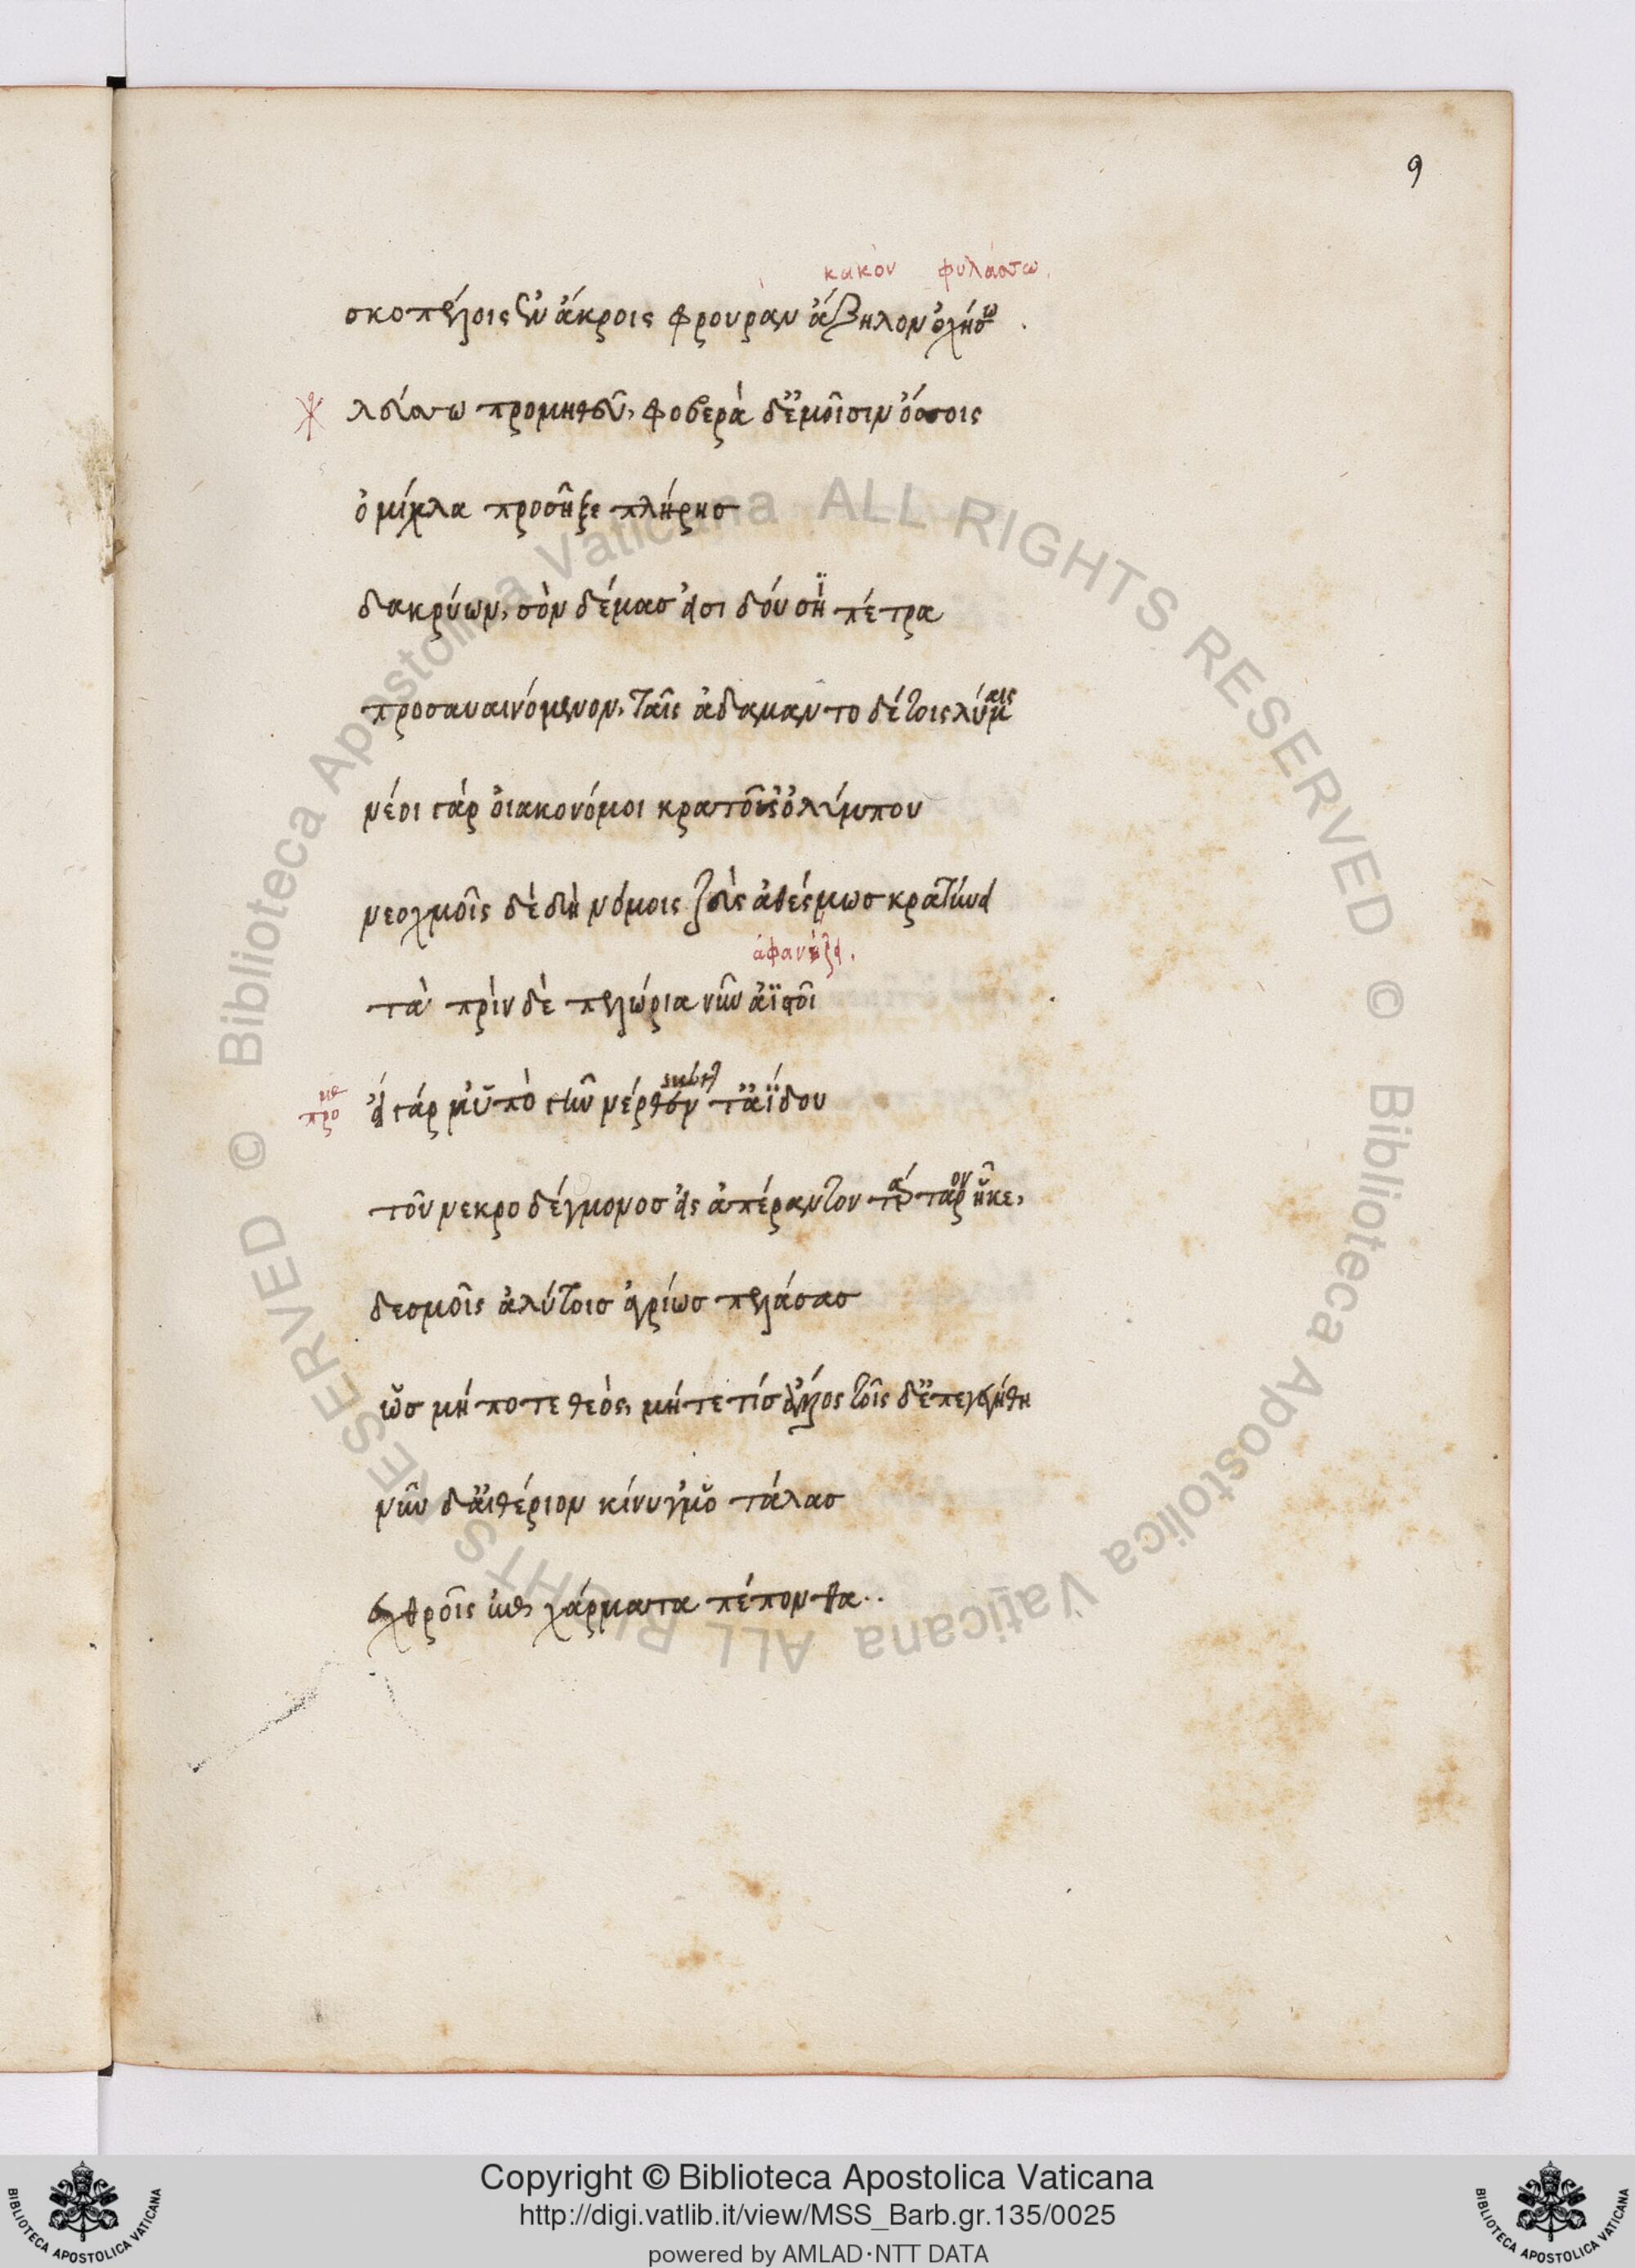 9
κακὸν φυλάσσω.
σκοπέλοις ἐν ἄκροις φρουρὰν ἄζηλον ὀχήσω.
λεύσσω προμηθεῦ, φοβερὰ δ' ἐμοῖσιν ὄσσοις
ὀμίχλα προσῆξε πλήρης
δακρύων, σὸν δέμας εἰσιδούση πέτρα
προσαυαινόμενον, ταῖς ἀδαμαντοδέτοις λύμαις
νέοι γάρ οἰακονόμοι κρατοῦσ' ὀλύμπου
νεοχμοῖς δὲ δὴ νόμοις ζεὺς ἀθέσμως κρατύνει
ἀφανίζει.
τὰ πρίν δὲ πελώρια νῦν ἀϊστοῖ
προ
εἰ γάρ μ' ὑπὸ γῆν νέρθεν τ' ἀΐδου
τοῦ νεκροδέγμονος εἰς ἀπέραντον τάρταρον ἧκε,
δεσμοῖς ἀλύτοις ἀγρίως πελάσας
ὡς μήποτε θεὸς, μήτε τίς ἄλλος τοῖς δ' ἐπεγήθη
νῦν δ' αἰθέριον κίνυγμ' ὁ τάλας
ἐχθροῖς χάρματα πέπονθα..
Copyright © Biblioteca Apostolica Vaticana
http://digi.vatlib.it/view/MSS_Barb.gr.135/0025
powered by AMLAD·NTT DATA
BIBLIOTECA APOSTOLICA VATICANA
BIBLIOTECA APOSTOLICA VATICANA
© Biblioteca Apostolica Vaticana ALL RIGHTS RESERVED © Biblioteca Apostolica Vaticana ALL RIGHTS RESERVED